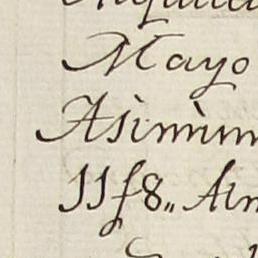 Mayo
Asìmìsm
11f8,, Am